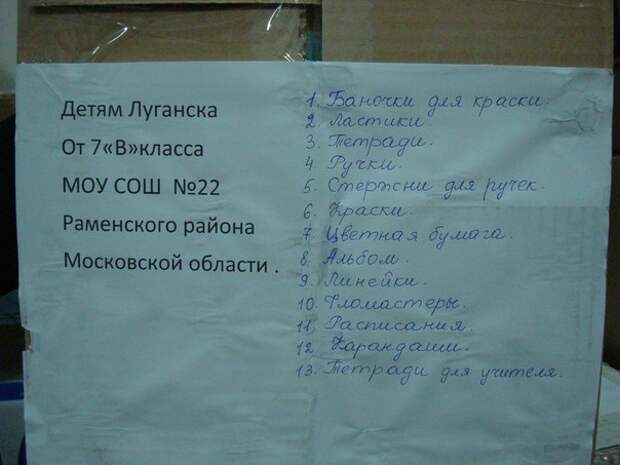 Детям Луганска
От 7«В»класса
МОУ СОШ №22
Раменского района
Московской области .
1. Баночки для краски.
2. Ластики.
3. Тетради.
4. Ручки.
5. Стержни для ручек.
6. Краски.
7. Цветная бумага.
8. Альбом.
9. Линейки.
10. Фломастеры.
11. Расписания.
12. Карандаши.
13. Тетради для учителя.